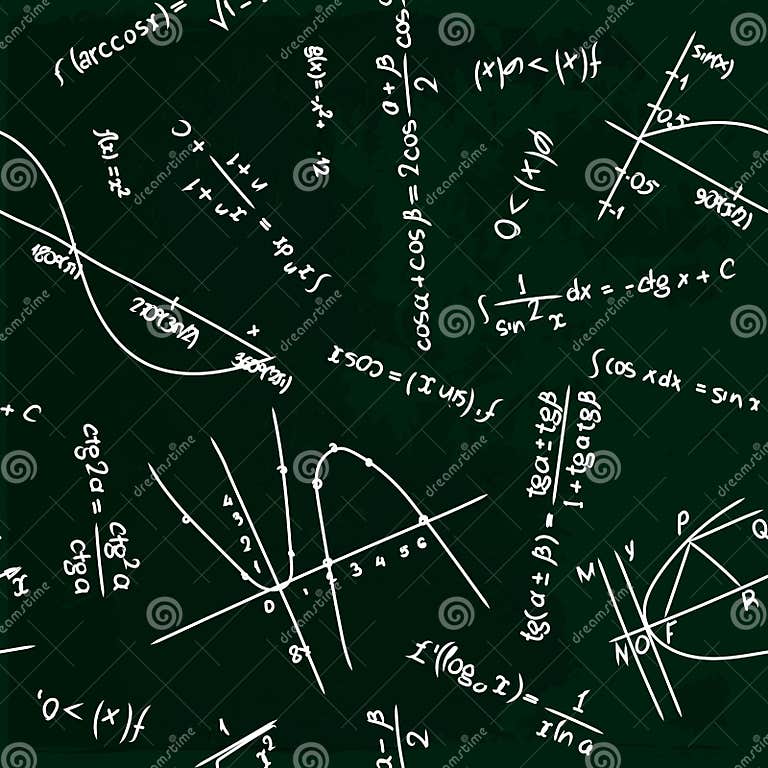 ∫(arccosx) =
√1-
g(x) = -x²+ .12
cosα + cosβ = 2cos α+β/2 cos-
f(x) > g(x)
sin(x)
1
0,5
-05
-1
90°(π/2)
f(x) = x²
∫xⁿdx = xn+1/n+1 + C
φ(x) > 0
180°(π)
270°(3π/2)
360°(2π)
∫ 1/sin²x dx = -ctg x + C
f'(sin x) = cos x
∫cos xdx = sin x
+ C
ctg2α = ctg²α/ctgα
tg(α ± β) = tgα ± tgβ/1 + tgαtgβ
4
3
2
1
0
1
2
3 4 5 6
-8
M
y
P
Q
R
N
O
F
f'(logₐ x) = 1/xlna
f(x) > 0,
1
x²
α-β/2
dreamstime